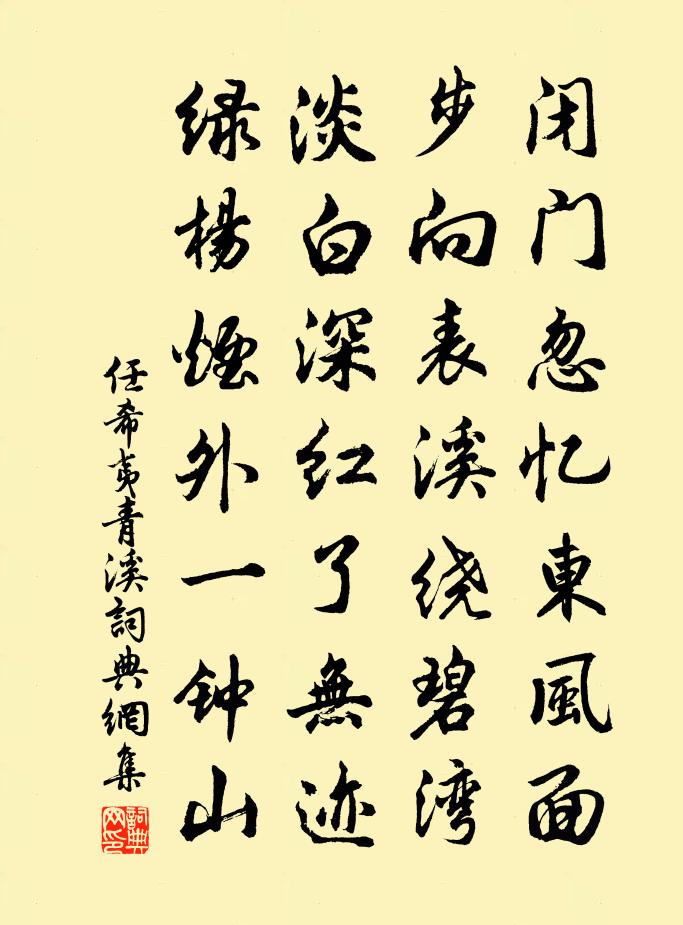 闭门忽忆東風面
步向表溪绕碧湾
淡白深红了無迹
绿楊煙外一钟山
任希夷青溪詞典網集
詞典网印